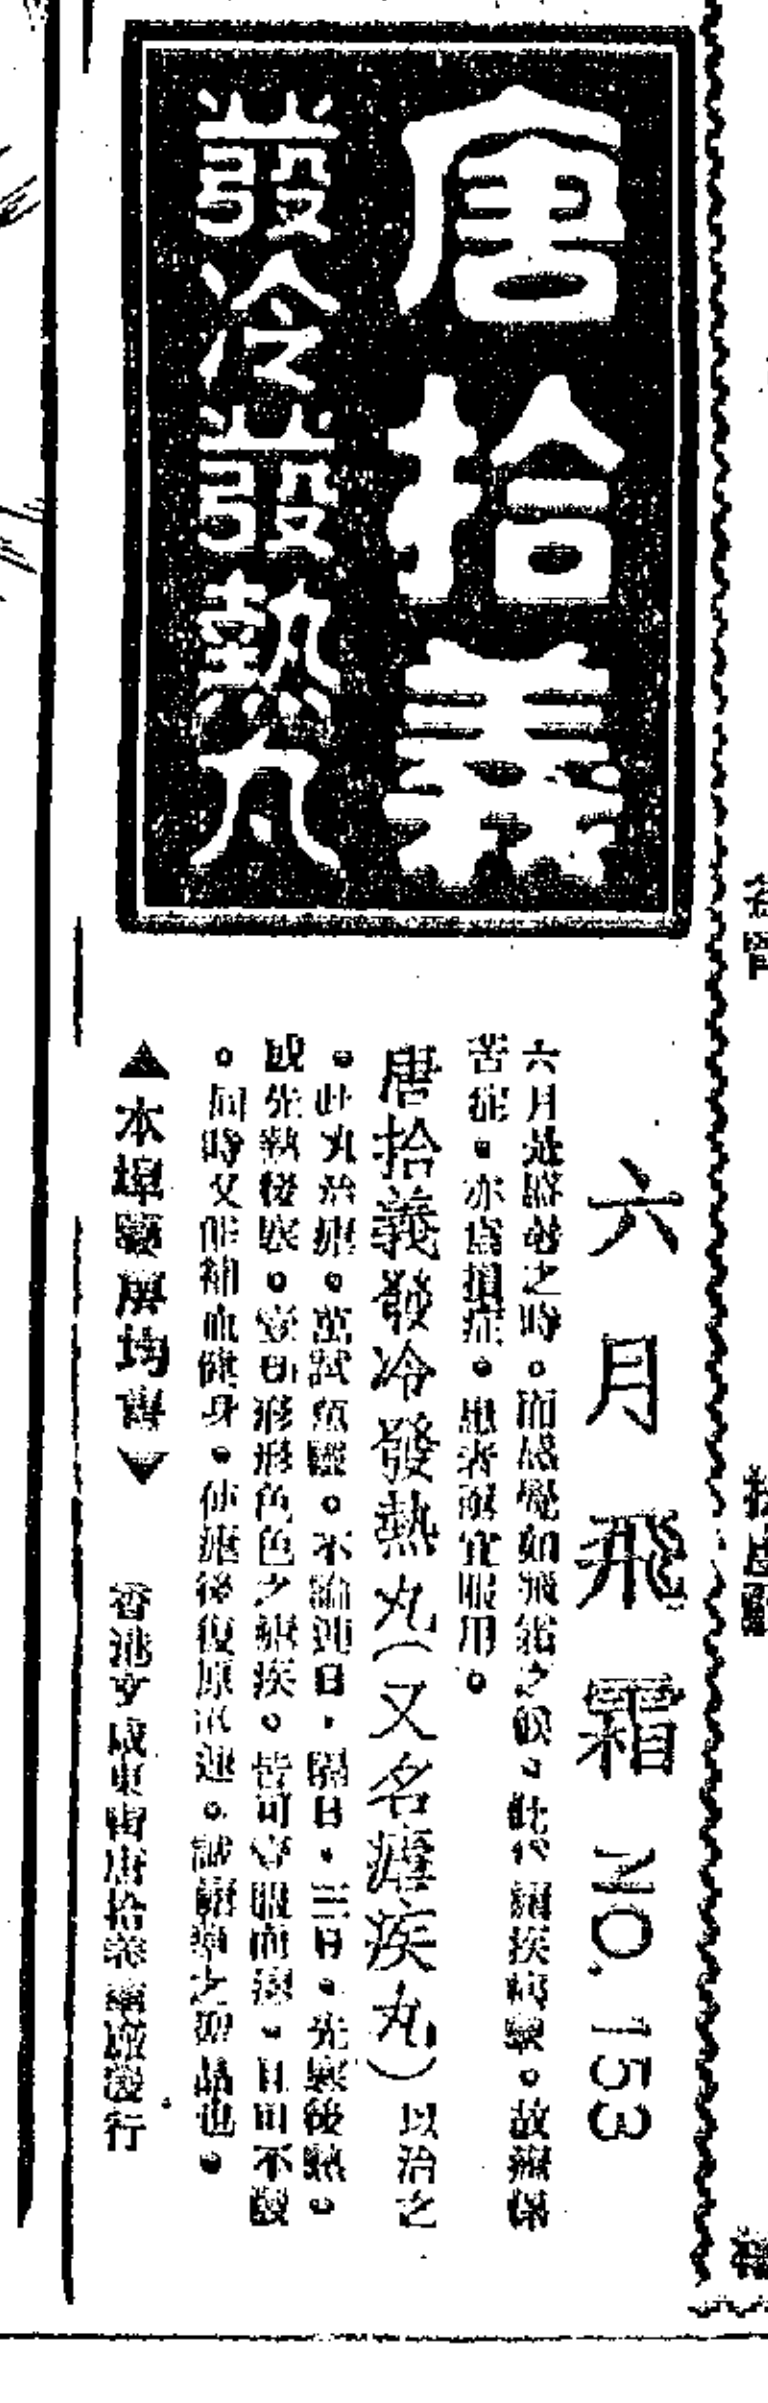 唐拾義
發冷發熱丸
六月飛霜 NO. 153
六月是盛暑之時。而感覺如飛霜之候。此代瘧疾病徵。故瘧係
苦症。亦為損症。患者宜服用。
唐拾義發冷發熱丸（又名瘧疾丸）以治之
。此丸治瘧。萬試萬靈。不論連日，隔日，三日，先寒後熱。
或先熱後寒。形形色色之瘧疾。皆可服而。且可不
。同時又能補血健身。使瘧後復原迅速。誠之聖品也。
▲本埠藥房均售▼
香港文咸東街唐拾義藥廠發行